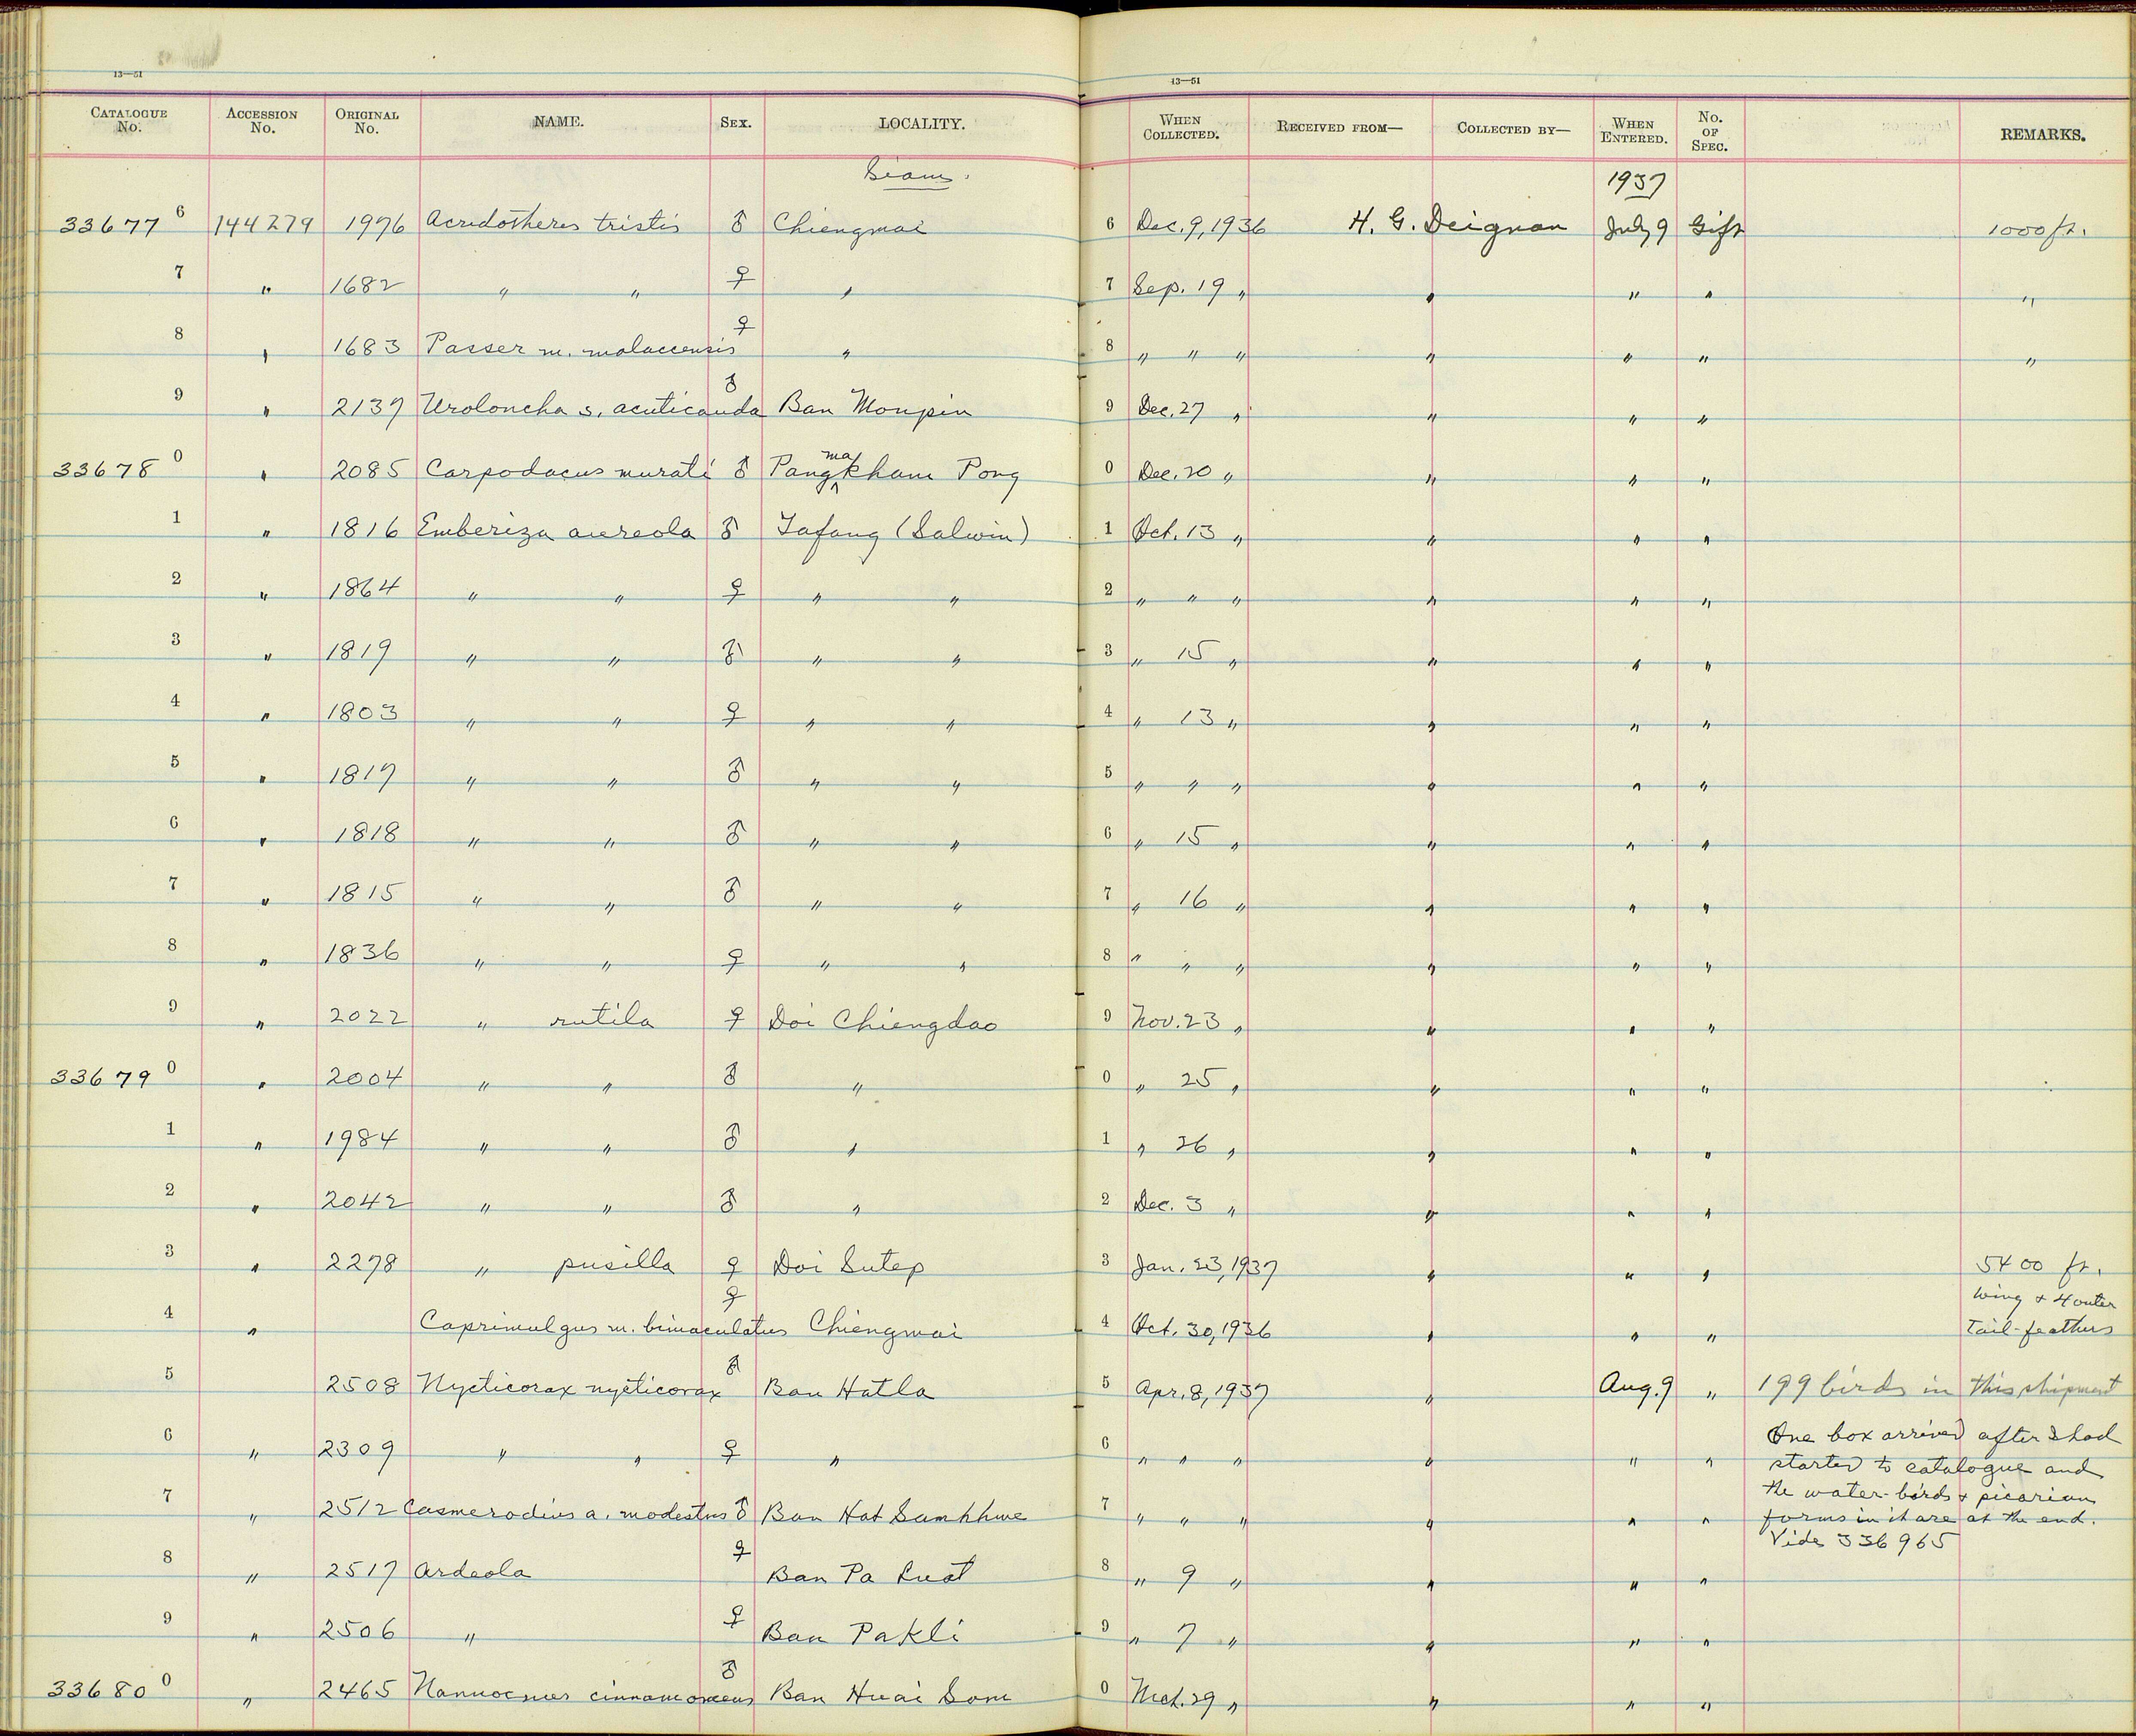 13—51 13—51
CATALOGUE No. ACCESSION No. ORIGINAL No. NAME. SEX. LOCALITY. WHEN COLLECTED. RECEIVED FROM— COLLECTED BY— WHEN ENTERED. No. OF SPEC. REMARKS.
Siam. 1937
33677 6 144279 1976 Acridotheres tristis ♂ Chiengmai 6 Dec. 9, 1936 H. G. Deignan July 9 Gift 1000 ft.
7 " 1682 " " ♀ " 7 Sep. 19 " " " " "
8 " 1683 Passer m. malaccensis ♀ " 8 " " " " " " "
9 " 2137 Uroloncha s. acuticauda ♂ Ban Moupin 9 Dec. 27 " " " "
33678 0 " 2085 Carpodacus murati ♂ Pangmakham Pong 0 Dec. 20 " " " "
1 " 1816 Emberiza aureola ♂ Tafang (Salwin) 1 Oct. 13 " " " "
2 " 1864 " " ♀ " " 2 " " " " " "
3 " 1819 " " ♂ " " 3 " 15 " " " "
4 " 1803 " " ♀ " " 4 " 13 " " " "
5 " 1817 " " ♂ " " 5 " " " " " "
6 " 1818 " " ♂ " " 6 " 15 " " " "
7 " 1815 " " ♂ " " 7 " 16 " " " "
8 " 1836 " " ♀ " " 8 " " " " " "
9 " 2022 " rutila ♀ Doi Chiengdao 9 Nov. 23 " " " "
33679 0 " 2004 " " ♂ " 0 " 25 " " " "
1 " 1984 " " ♂ " 1 " 26 " " " "
2 " 2042 " " ♂ " 2 Dec. 3 " " " "
3 " 2278 " pusilla ♀ Doi Sutep 3 Jan. 23, 1937 " " " 5400 ft.
4 " Caprimulgus m. bimaculatus ♀ Chiengmai 4 Oct. 30, 1936 " " " Wing & 4 outer
tail-feathers
5 2508 Nycticorax nycticorax ♂ Ban Hatla 5 Apr. 8, 1937 " Aug. 9 " 199 birds in this shipment
6 " 2309 " " ♀ " 6 " " " " " " One box arrived after I had
started to catalogue and
the water-birds & picarian
7 " 2512 Casmerodius a. modestus ♂ Ban Hat Samkhwe 7 " " " " " " forms in it are at the end.
Vide 336965
8 " 2517 Ardeola ♀ Ban Pa Kuat 8 " 9 " " " "
9 " 2506 " ♀ Ban Pakli 9 " 7 " " " "
33680 0 " 2465 Nannocnus cinnamomeus ♂ Ban Huai Som 0 Mch. 29 " " " "